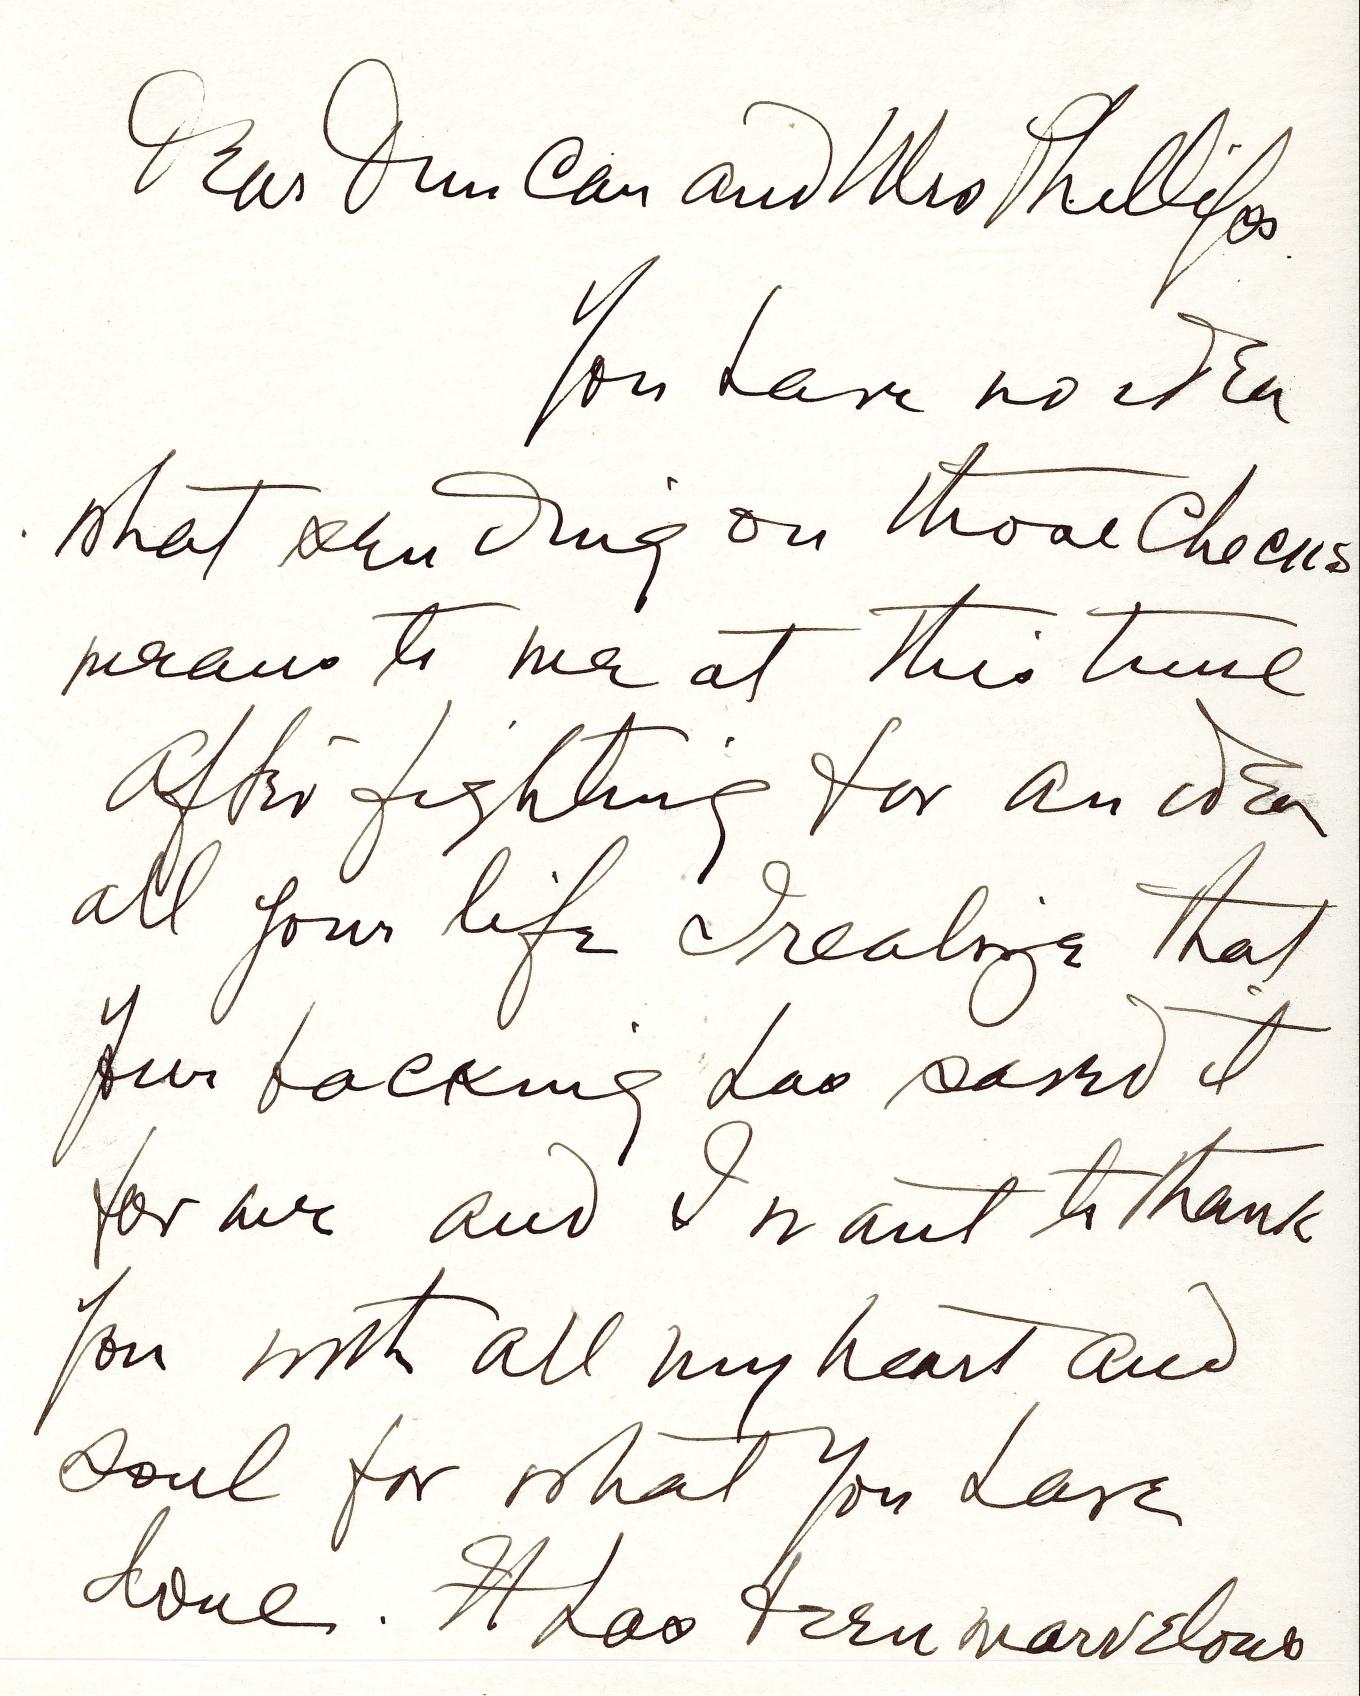 Dear Duncan and Mrs Phillips.
You have no idea
what sending on those checks
means to me at this time
After fighting for an idea
all your life I realize that
Your backing has saved it
for me and I want to thank
You with all my heart and
soul for what you have
done. It has been marvelous